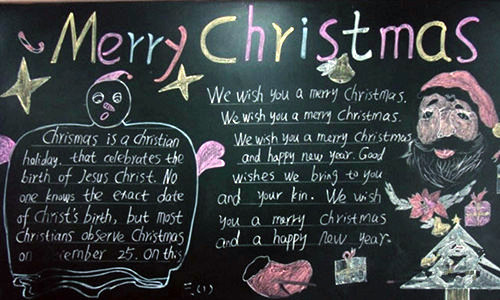 Merry Christmas
Chrismas is a christian
holiday. that celebrates the
birth of Jesus Christ. No
one knows the exact date
of Christ's birth, but most
christians observe Christmas
on 25. on this
We wish you a merry Christmas.
We wish you a merry Christmas.
We wish you a merry Christmas
and happy new year. Good
wishes we bring to you
and your kin. We wish
you a marry christmas
and a happy new year.